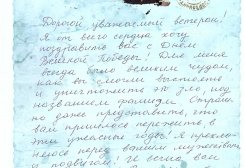 Дорогой уважаемый ветеран!
Я от всего сердца хочу
поздравить вас с Днём
Великой Победы! Для меня
всегда было великим чудом,
как вы смогли выстоять
и уничтожить это зло, под
названием фашизм. Страшно
но даже представить, что
вам пришлось пережить в
эти ужасные годы! Я прекло-
няюсь перед вашим мужеством
и подвигом! И вечна вам